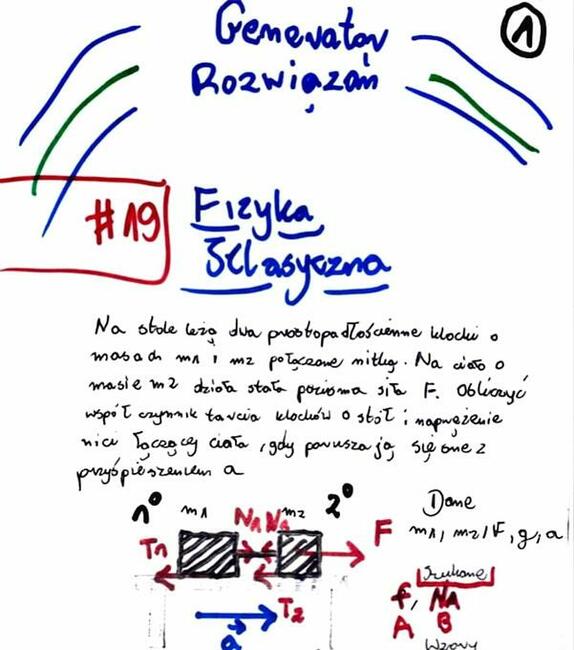 Generator
Rozwiązań
1
#19
Fizyka
Klasyczna
Na stole leżą dwa prostopadłościenne klocki o
masach m1 i m2 połączone nitką. Na ciało o
masie m2 działa stała pozioma siła F. Obliczyć
współczynnik tarcia klocków o stół i naprężenie
nici łączącej ciała, gdy poruszają się one z
przyśpieszeniem a
1° m1 N1 N1 m2 2°
Dane
T1 F m1, m2, F, g, a
Szukane
T2 f, N1
a A B
Wzory